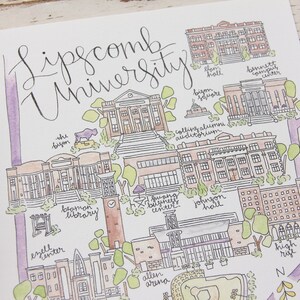 Lipscomb
University
hall
bennett
campus
center
bison
square
the
bison
collins alumni
auditorium
beaman
library
swang
business
center
johnson
hall
ezell
center
allen
arena
high
rise
N